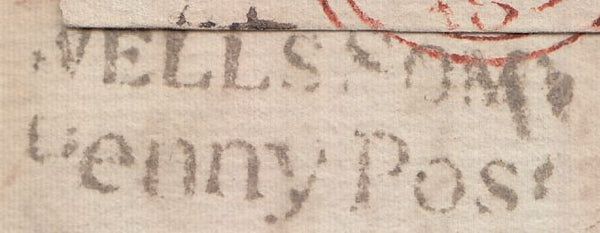 WELLS SOM
Penny Post